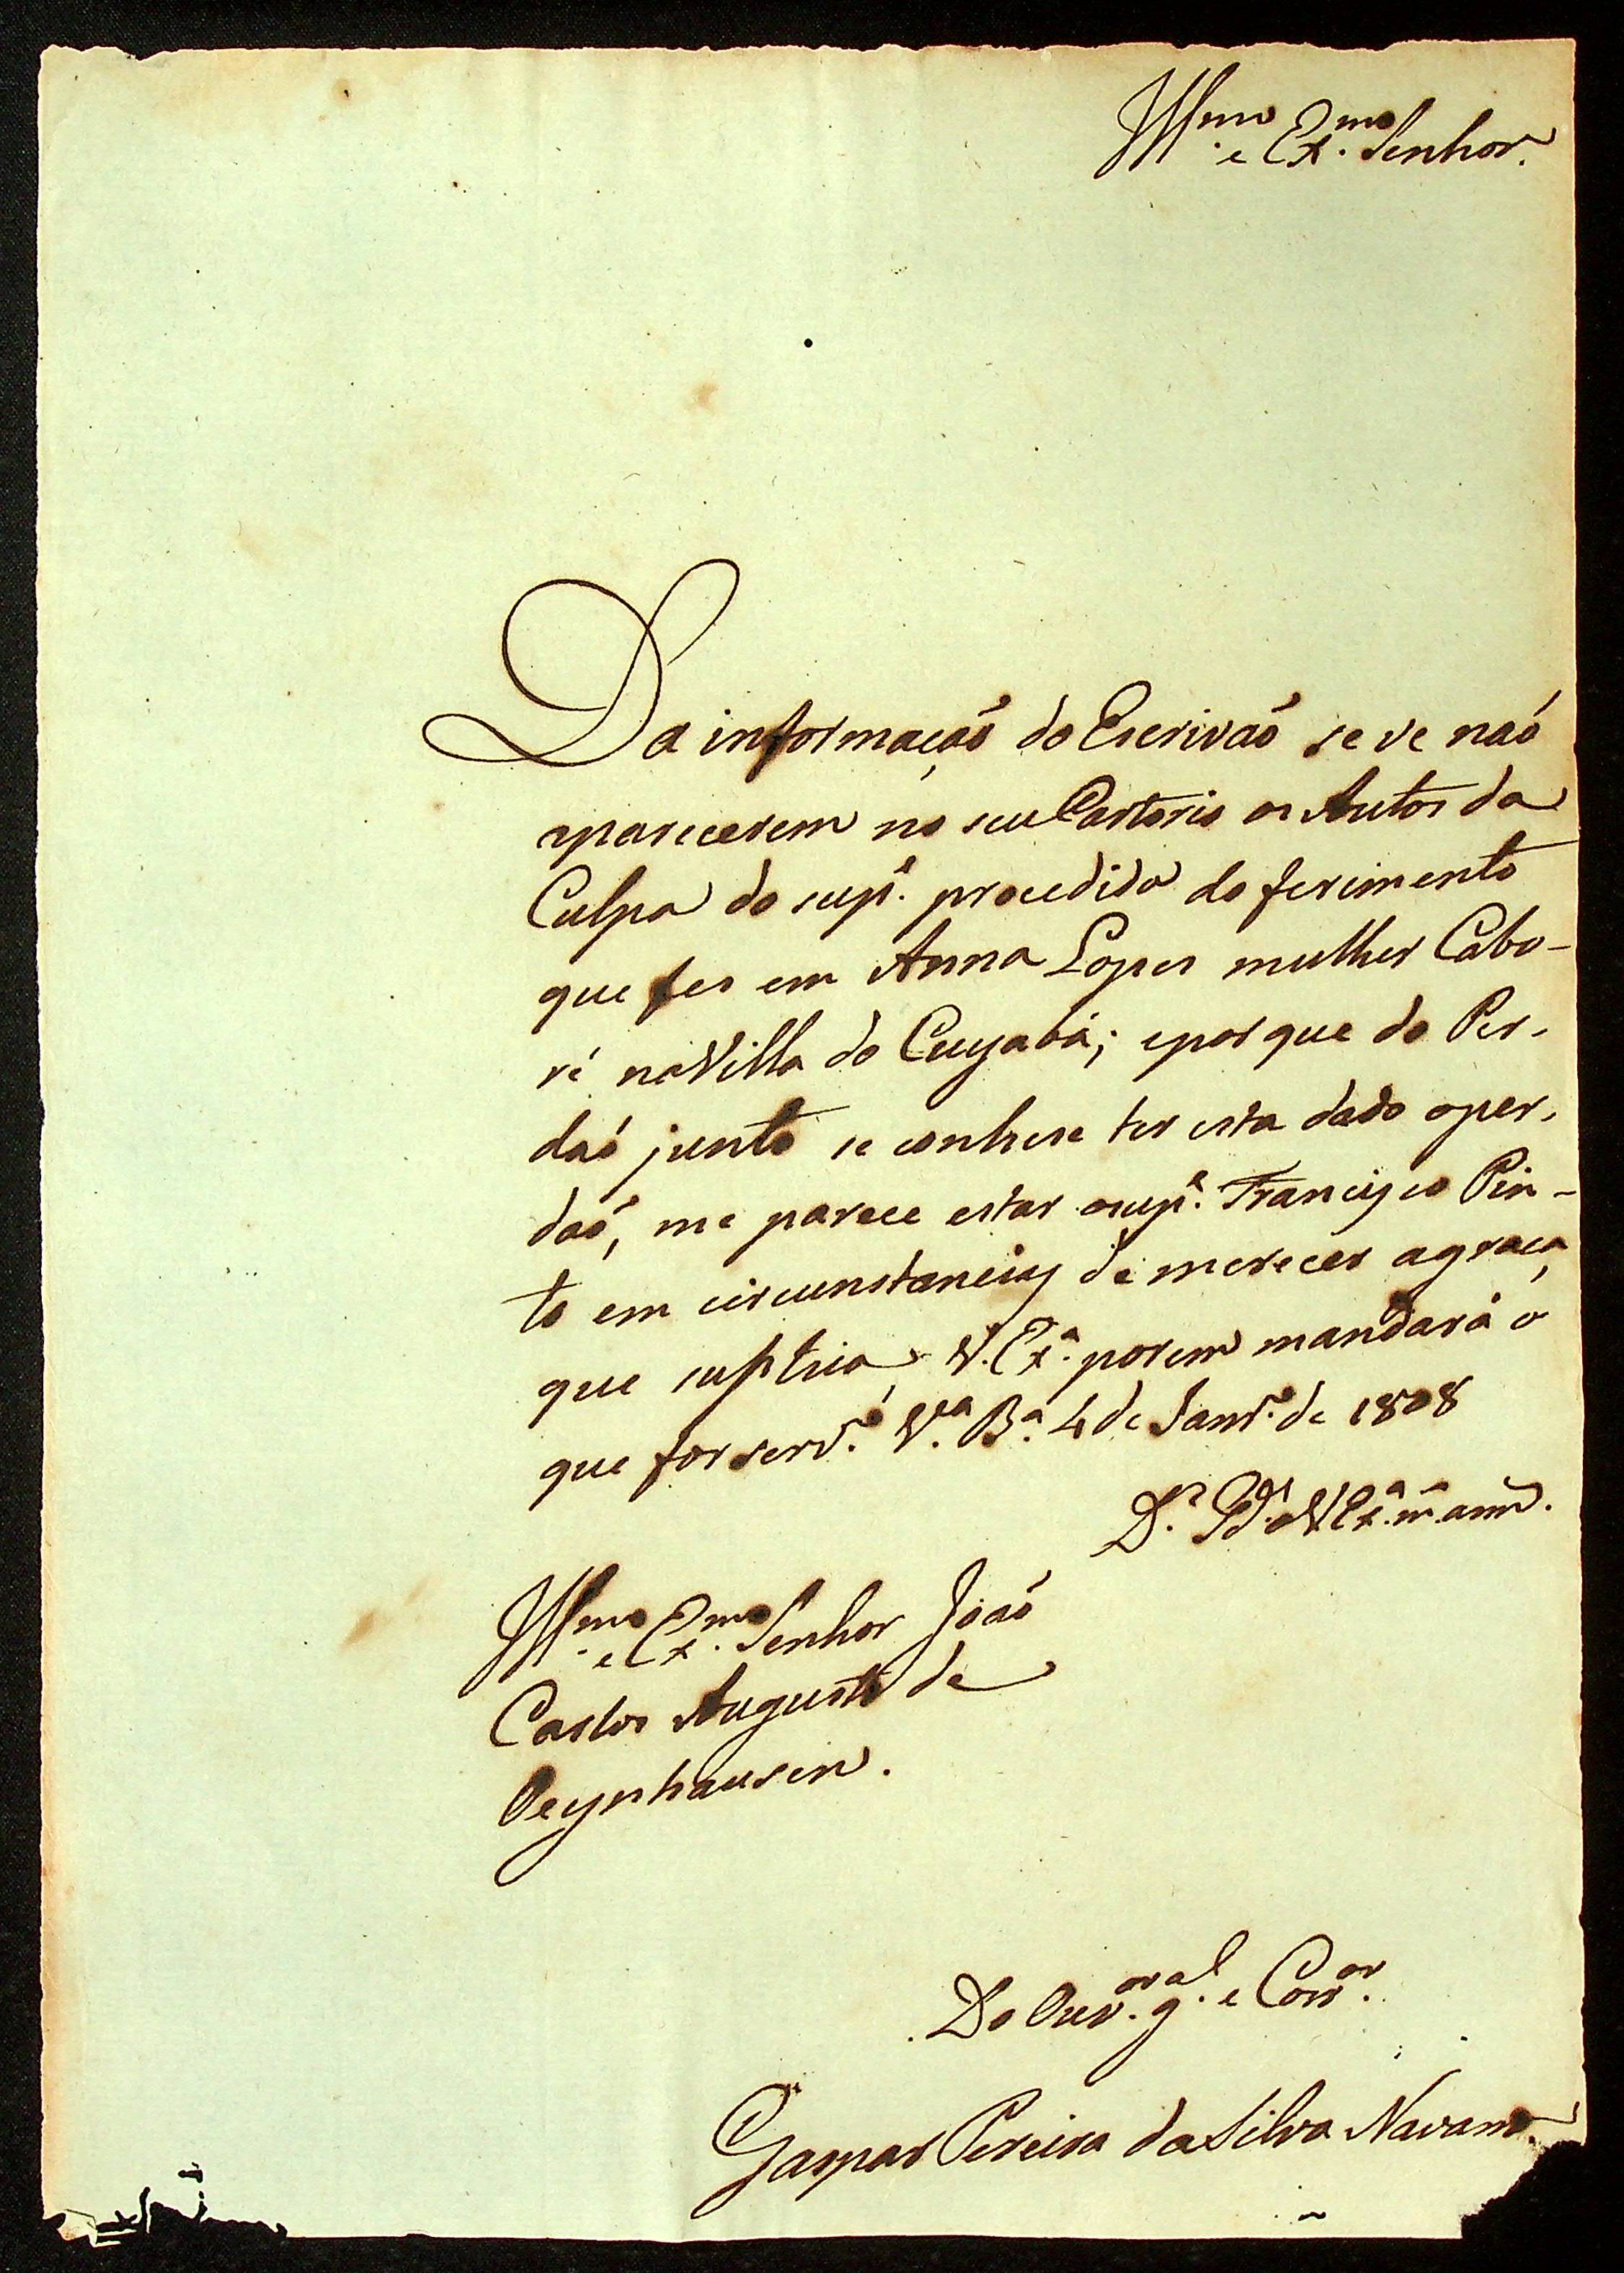 Ill.mo e Ex.mo Senhor.
Da informaçaõ do Escrivaõ se ve naõ
aparecerem no seu Cartorio os Autos da
Culpa do sup.e procedida do ferimento
que fes em Anna Lopes mulher Cabo-
ré na Villa do Cuyabá; e porque do Per-
daõ junto se conhese ter esta dado o per-
daõ, me parece estar o sup.e Francisco Pin-
to em circunstancias de merecer a graça,
que suplica, V. Ex.a porem mandará o
que for serv.o V.a B.a 4 de Janr.o de 1808
D.s G.de a V Ex.a m.s ann.s
Ill.mo e Ex.mo Senhor Joaõ
Carlos Augusto de
Oeynhausen.
Do Ouv.or g.al e Corr.or
Gaspar Pereira da Silva Navarro.